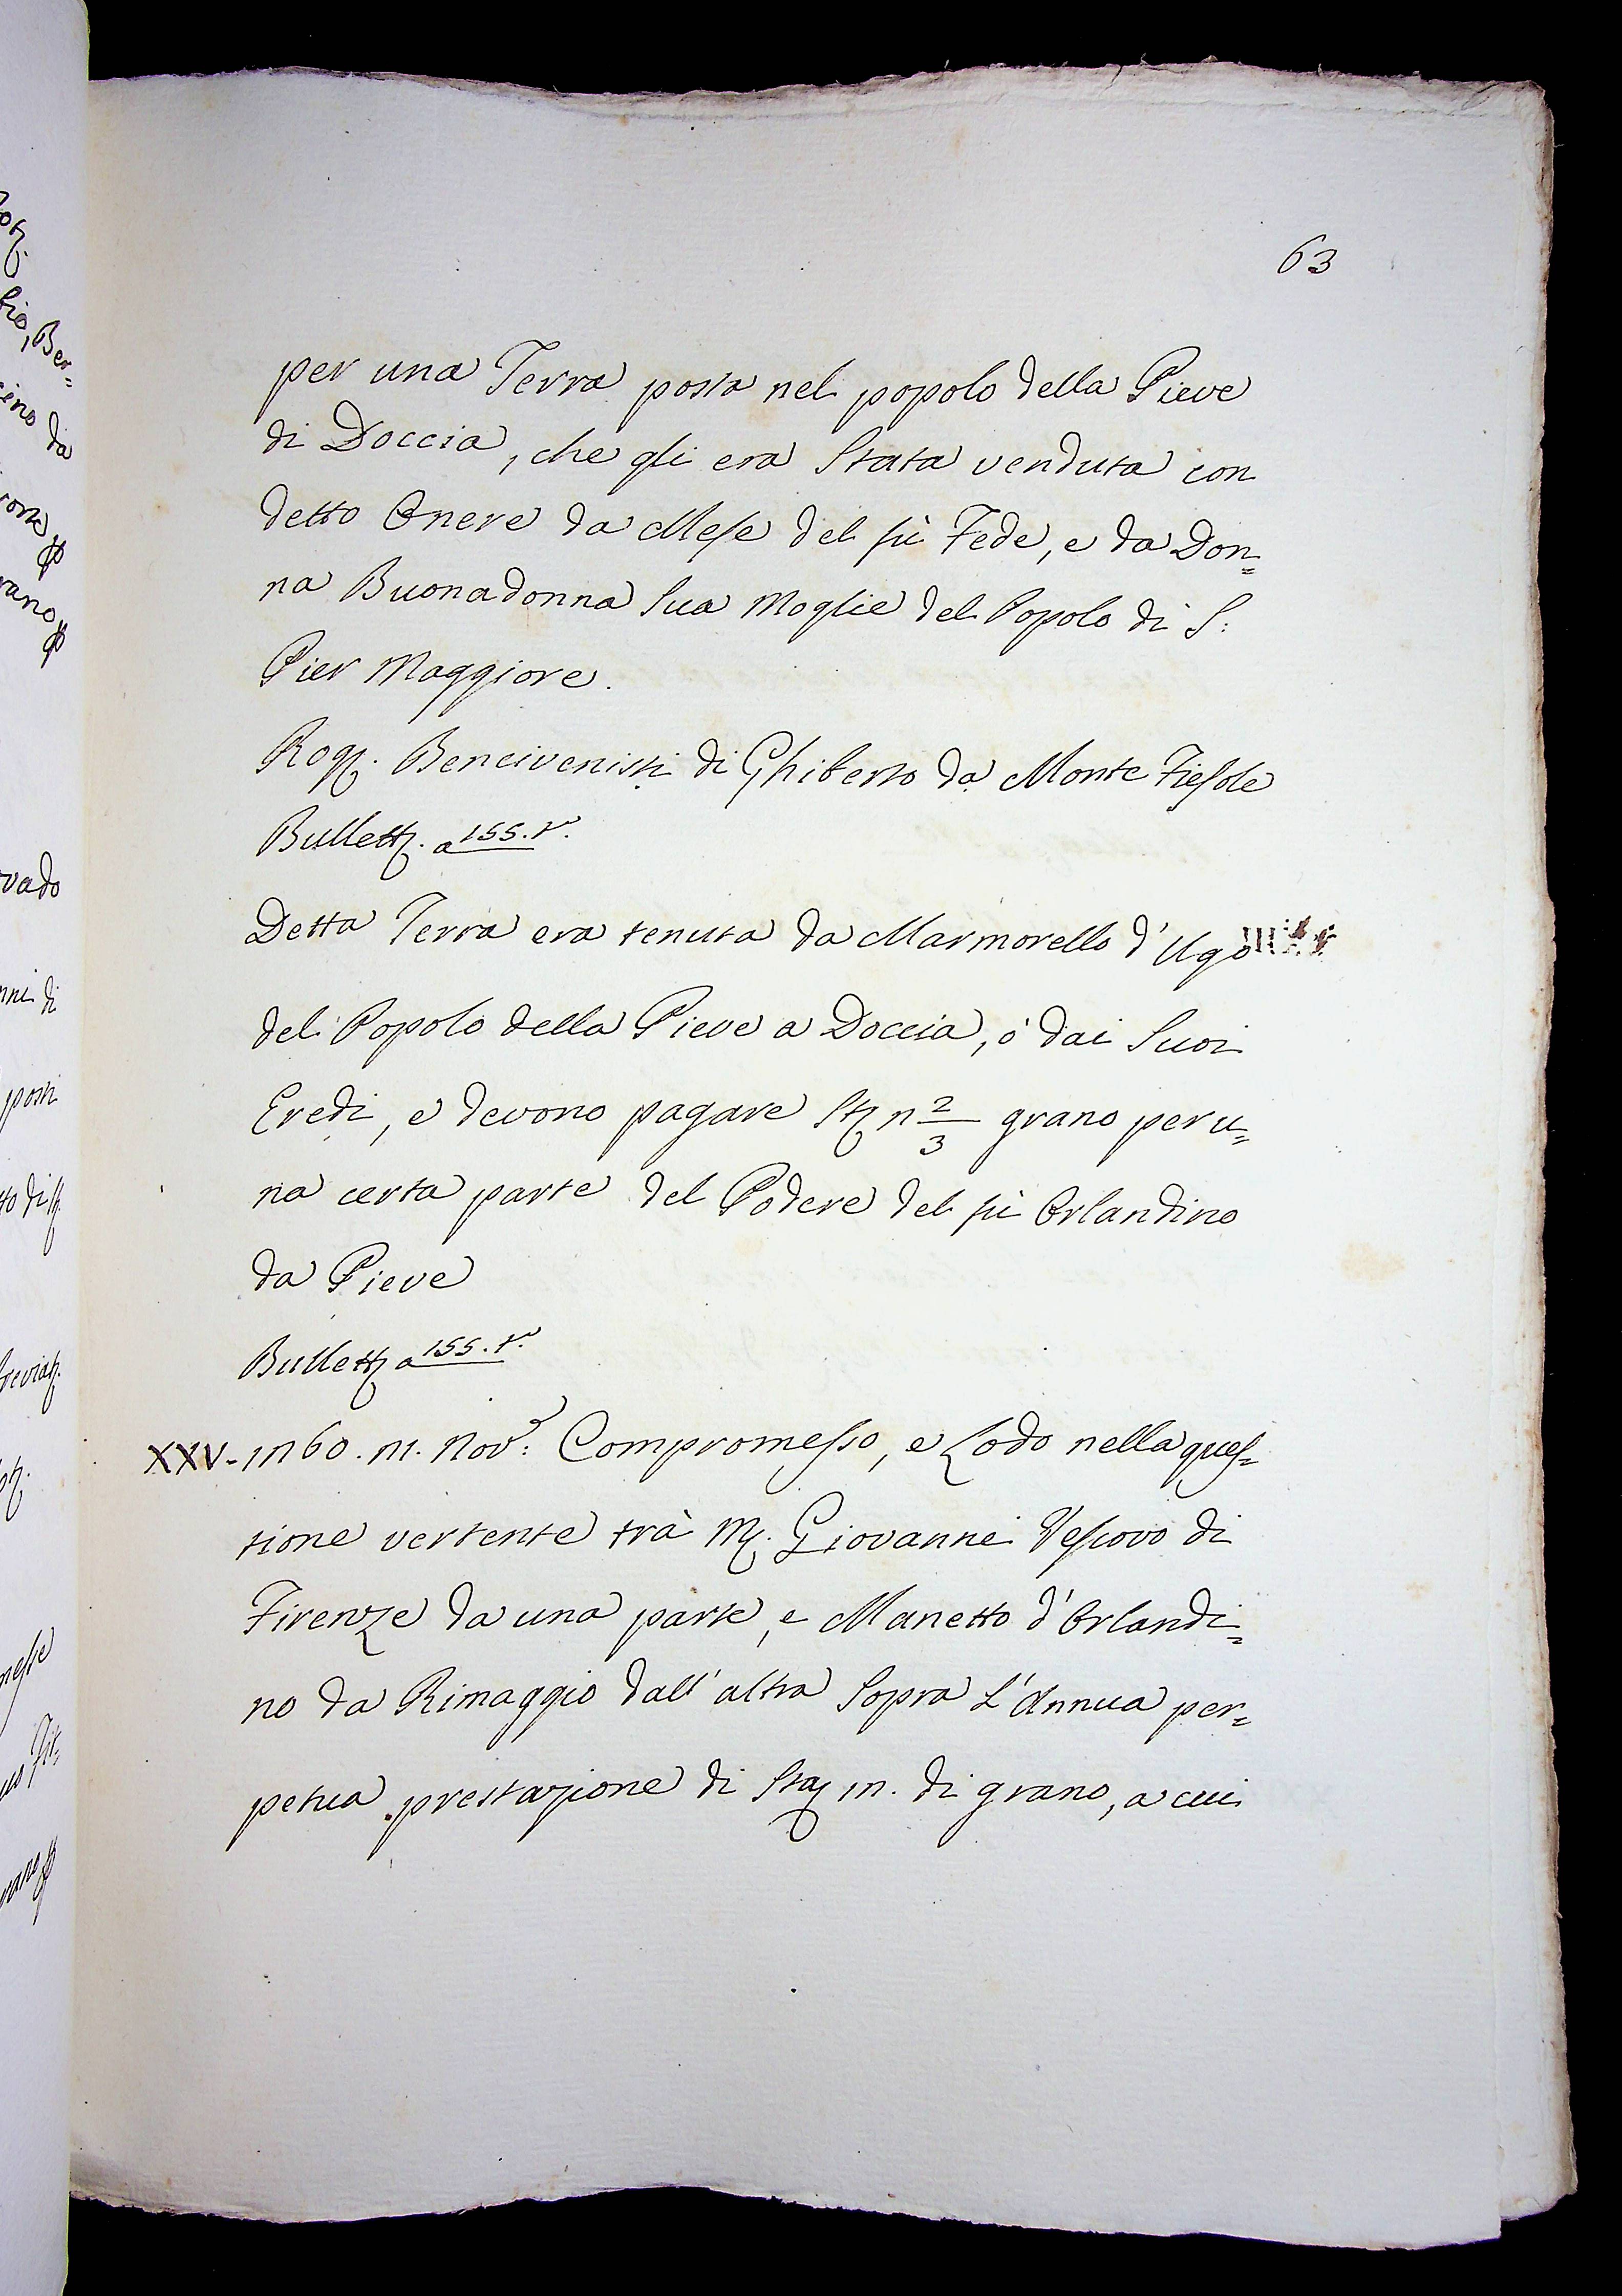 63
per una Terra posta nel popolo della Pieve
di Doccia, che gli era Stata venduta con
detto Onere da Mese del fù Fede, e da Don=
na Buonadonna Sua Moglie del Popolo di S:
Pier Maggiore.
Rog. Bencivenisti di Ghiberto da Monte Fiesole
Bullett. a 155. t.
Detta Terra era tenuta da Marmorello d'Ugo
del Popolo della Pieve a Doccia, ò dai Suoi
Eredi, e devono pagare St n 2/3 grano per u=
na certa parte del Podere del fù Orlandino
da Pieve
Bullett a 155. t.
XXV - 1260. 12. Nov: Compromesso, e Lodo nella ques=
tione vertente trà M. Giovanni Vescovo di
Firenze da una parte, e Manetto d'Orlandi=
no da Rimaggio dall'altra Sopra L'Annua per=
petua prestazione di Sta di grano, a cui